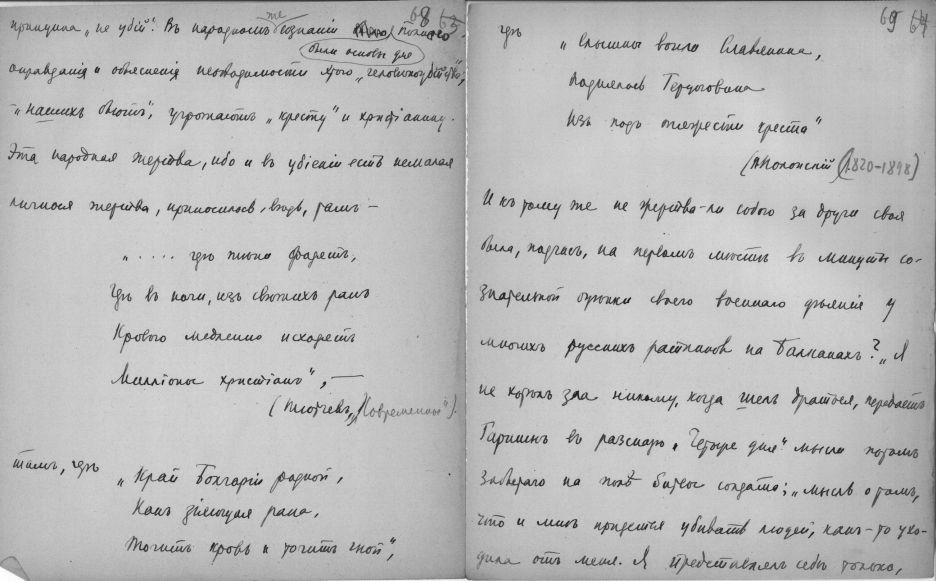 68 63
принципа „не убій“. Въ народномъ же сознаніи
были основы для
оправданія и объясненія необходимости этого „человѣкоубійства“,
„нашихъ бьютъ“, угрожаютъ „кресту“ и христіанину.
Эта народная жертва, ибо и въ убіеніи есть немалая
личная жертва, приносилась, вѣдь, тамъ —
„ . . . . гдѣ
Гдѣ въ ночи, изъ свѣжихъ ранъ
Кровью медленно исходятъ
Милліоны христіанъ“, —
(Тютчевъ, „Современное“).
тамъ, гдѣ „Край Болгаріи родной,
Какъ зіяющая рана,
Точитъ кровь и точитъ гной“,
69 64
гдѣ „Слышны вопли Славянина,
Поднялась Герцоговина
Изъ подъ тяжести креста“
(Полонскій (1820-1898)
И къ тому же не жертва-ли собою за други своя
была, подчасъ, на первомъ мѣстѣ въ минуты со-
знательной оцѣнки своего военнаго дѣянія у
многихъ русскихъ ратниковъ на Балканахъ? „Я
не хотѣлъ зла никому, когда шелъ драться, передаетъ
Гаршинъ въ разсказѣ „Четыре дня“ мысли
на полѣ битвы солдата; „мысль о томъ,
что и мнѣ придется убивать людей, какъ-то ухо-
дила отъ меня. Я представлялъ себѣ только,